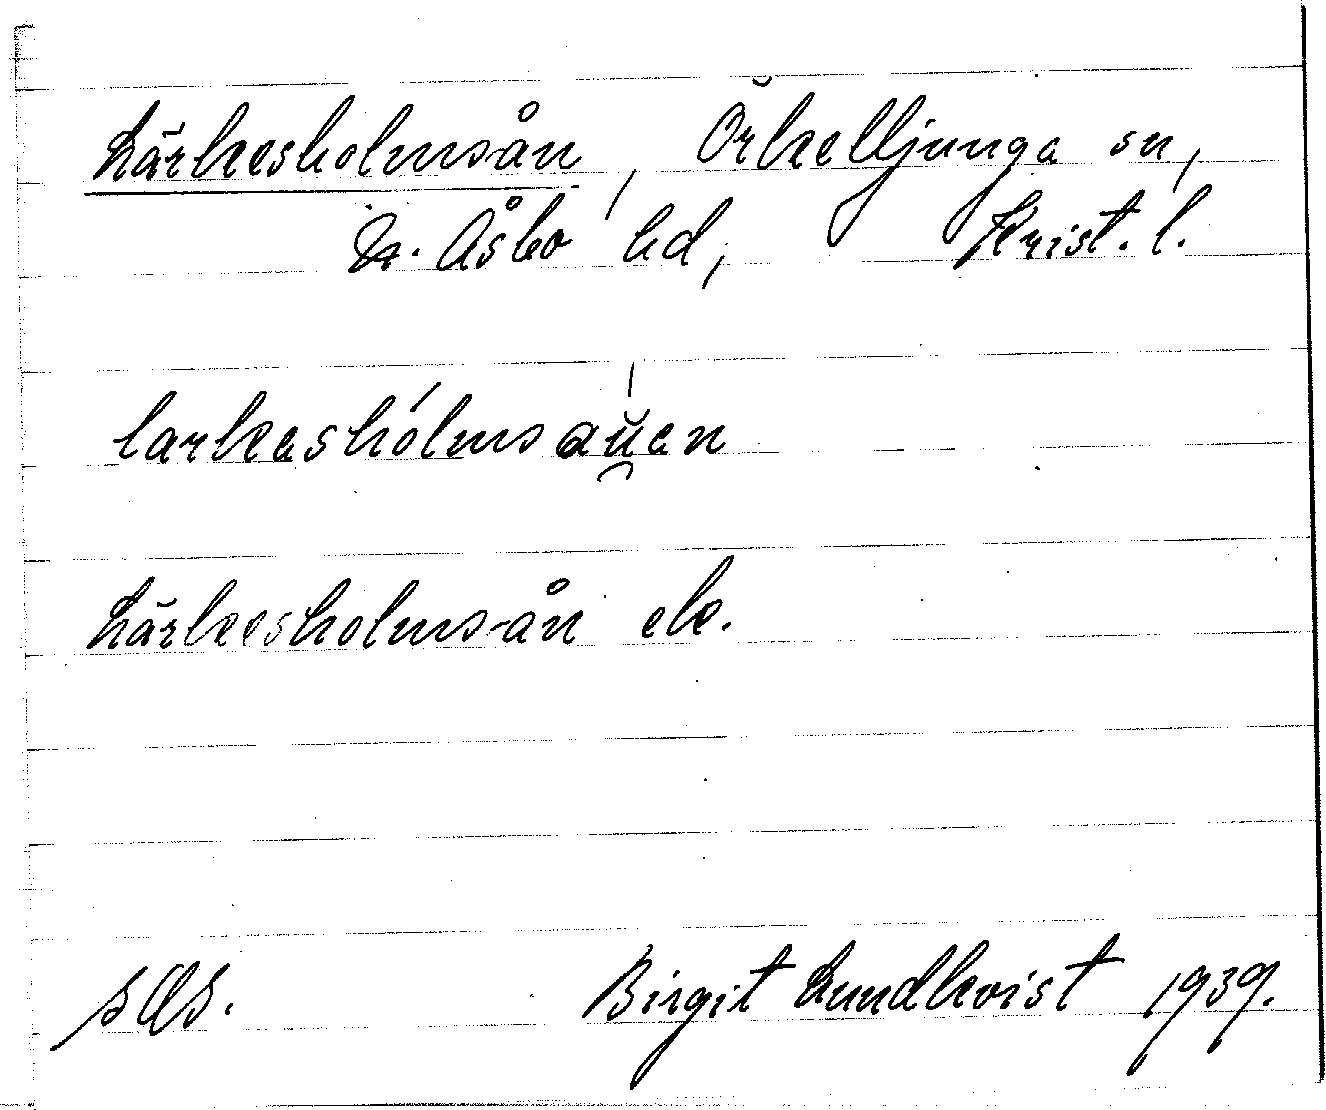 Lärkesholmsån, Örkelljunga sn,
N. Åsbo hd, Krist. l.
larkashólmsau̯en
Lärkesholmsån ek.
Birgit Lundkvist 1939.